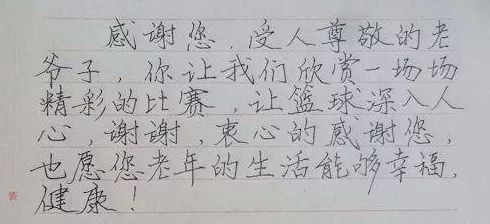 感谢您，受人尊敬的老
爷子，你让我们欣赏一场场
精彩的比赛，让篮球深入人
心，谢谢，衷心的感谢您，
也愿您老年的生活能够幸福，
健康！